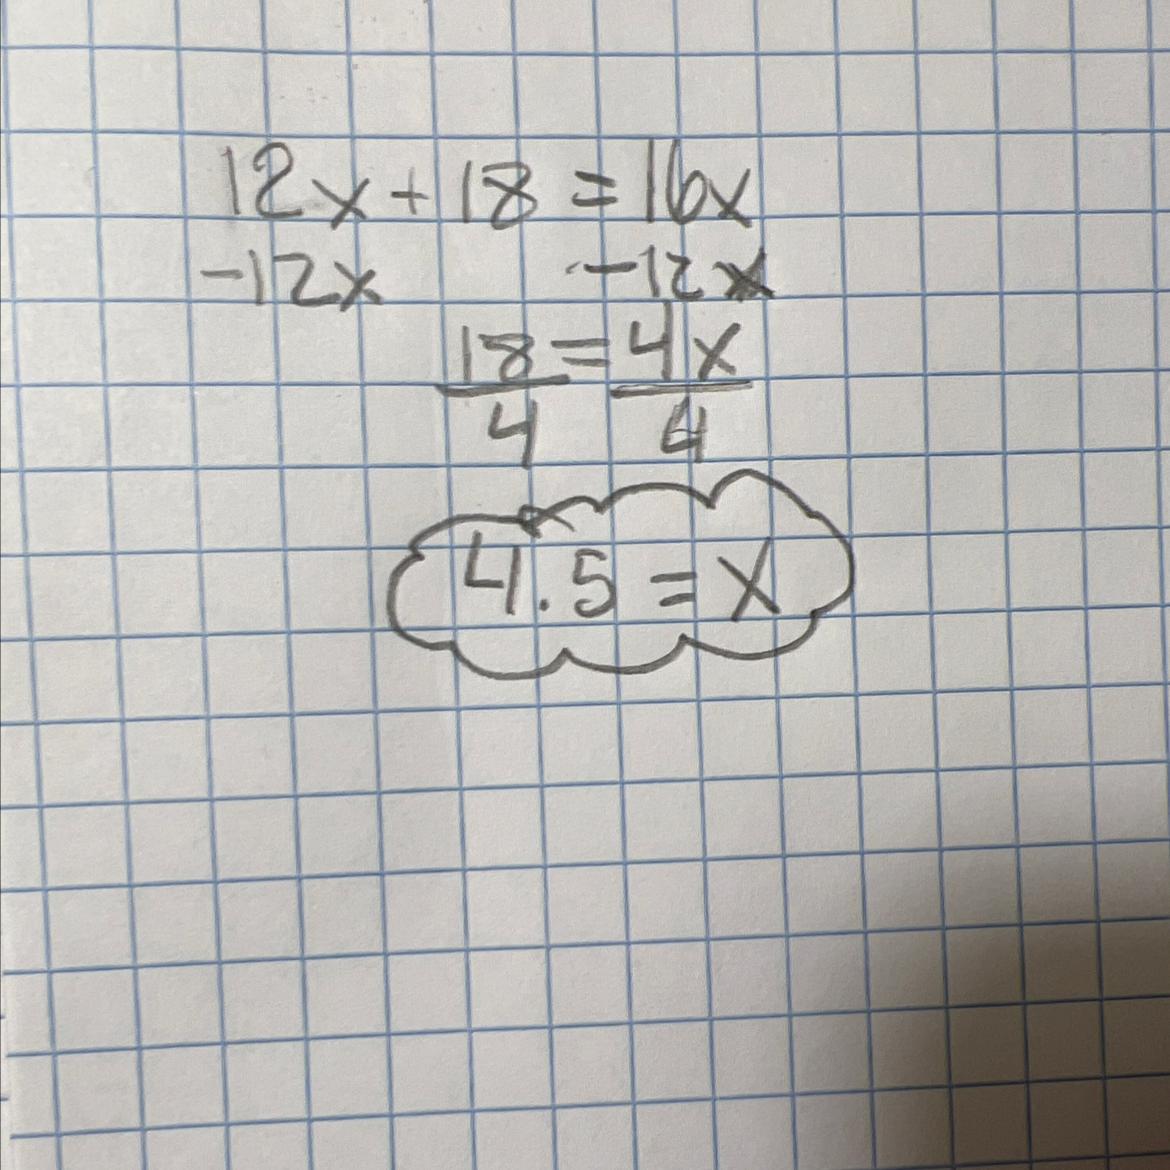 12x + 18 = 16x
-12x -12x
18 = 4x
4 4
4.5 = x